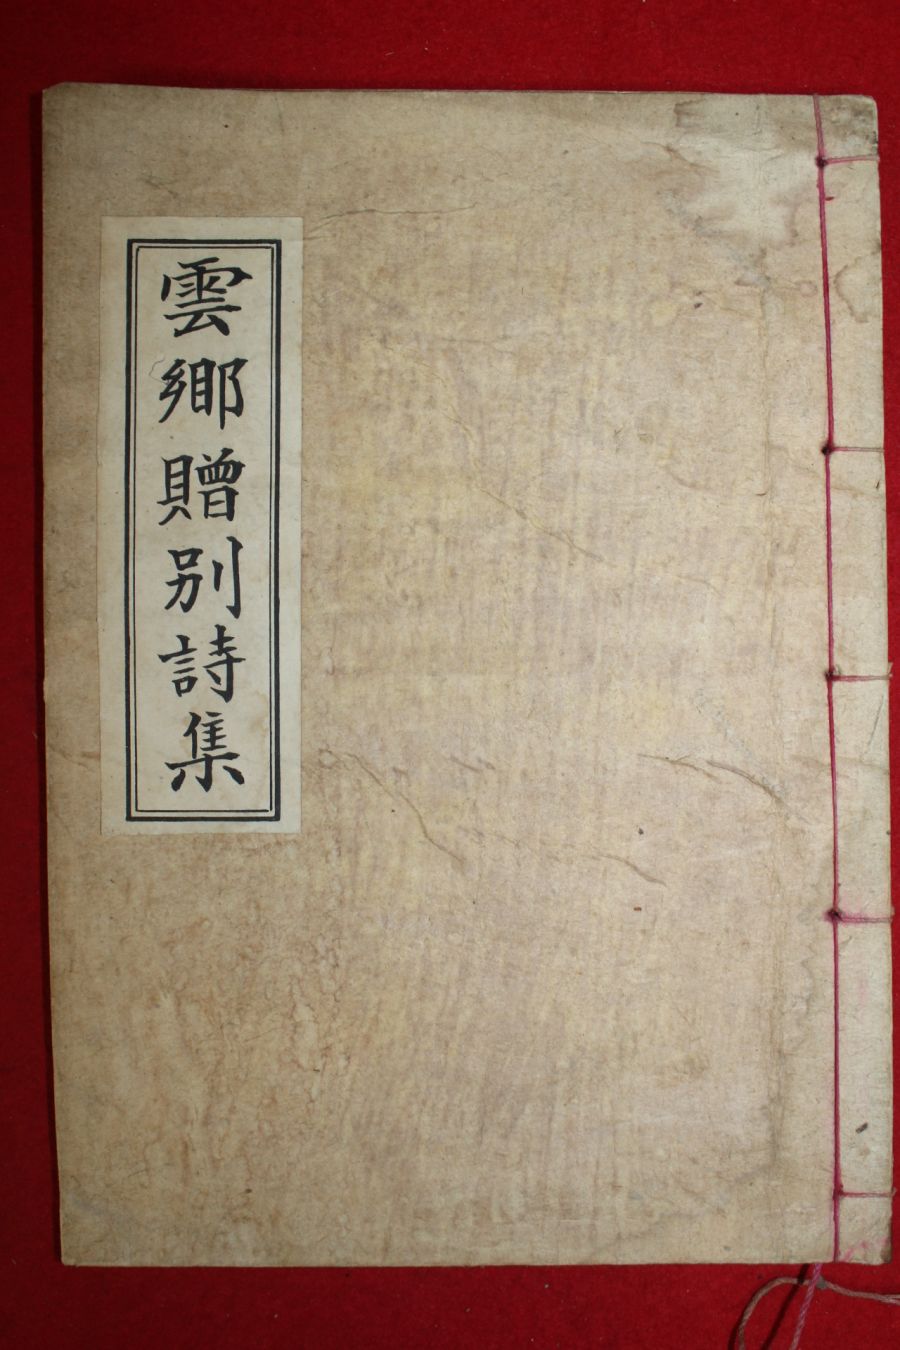 雲鄉贈別詩集